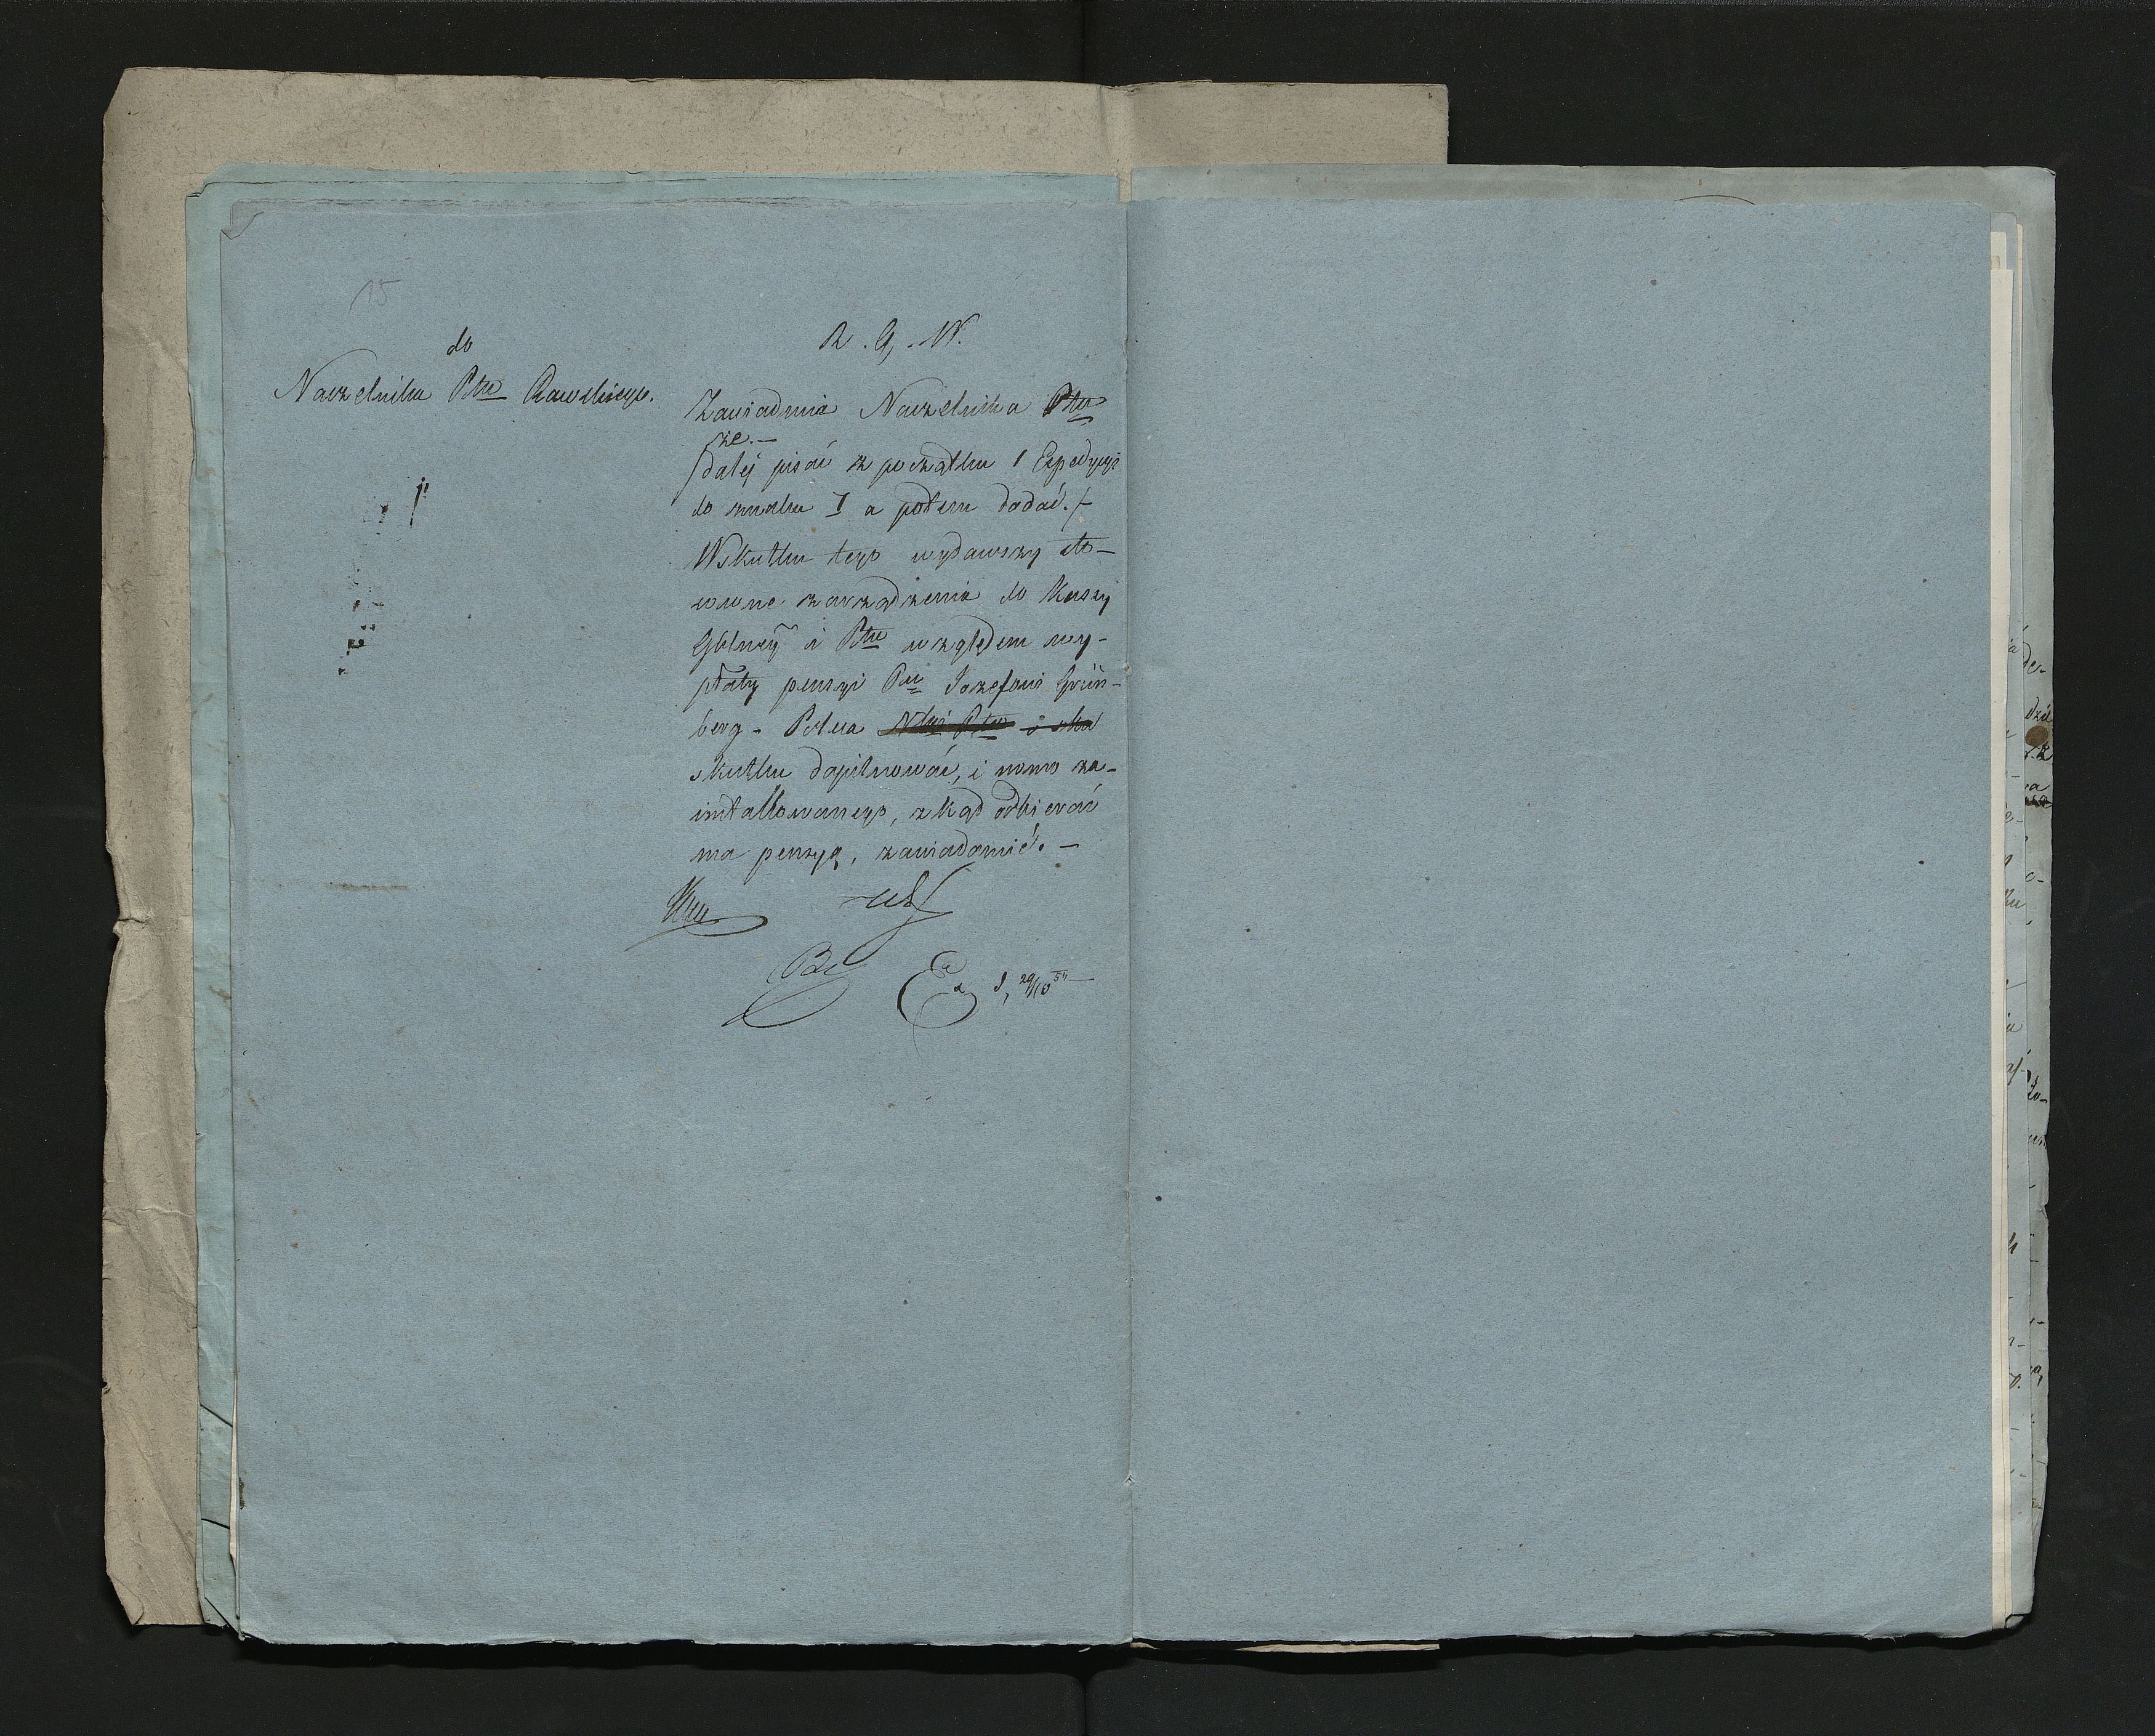 15
do
Naczelnika Ptu Rawskiego.
R. G. W.
Zawiadmia Naczelnika Ptu
że. —
/dalej pisać z początku 1 Expedycyi
do znaku I a potem dodać./
Wskutku tego wydawszy sto-
sowne zarządzenia do Kassy
Głłney i Ptu względem wy-
płaty pensyi Pu Jozefowi Grün-
berg - Poleca Nlwi Ptu
skutku dopilnować, i nowo za-
intallowanego, zkąd odbierać
ma pensyą, zawiadomić. —
Ex 29/10 54